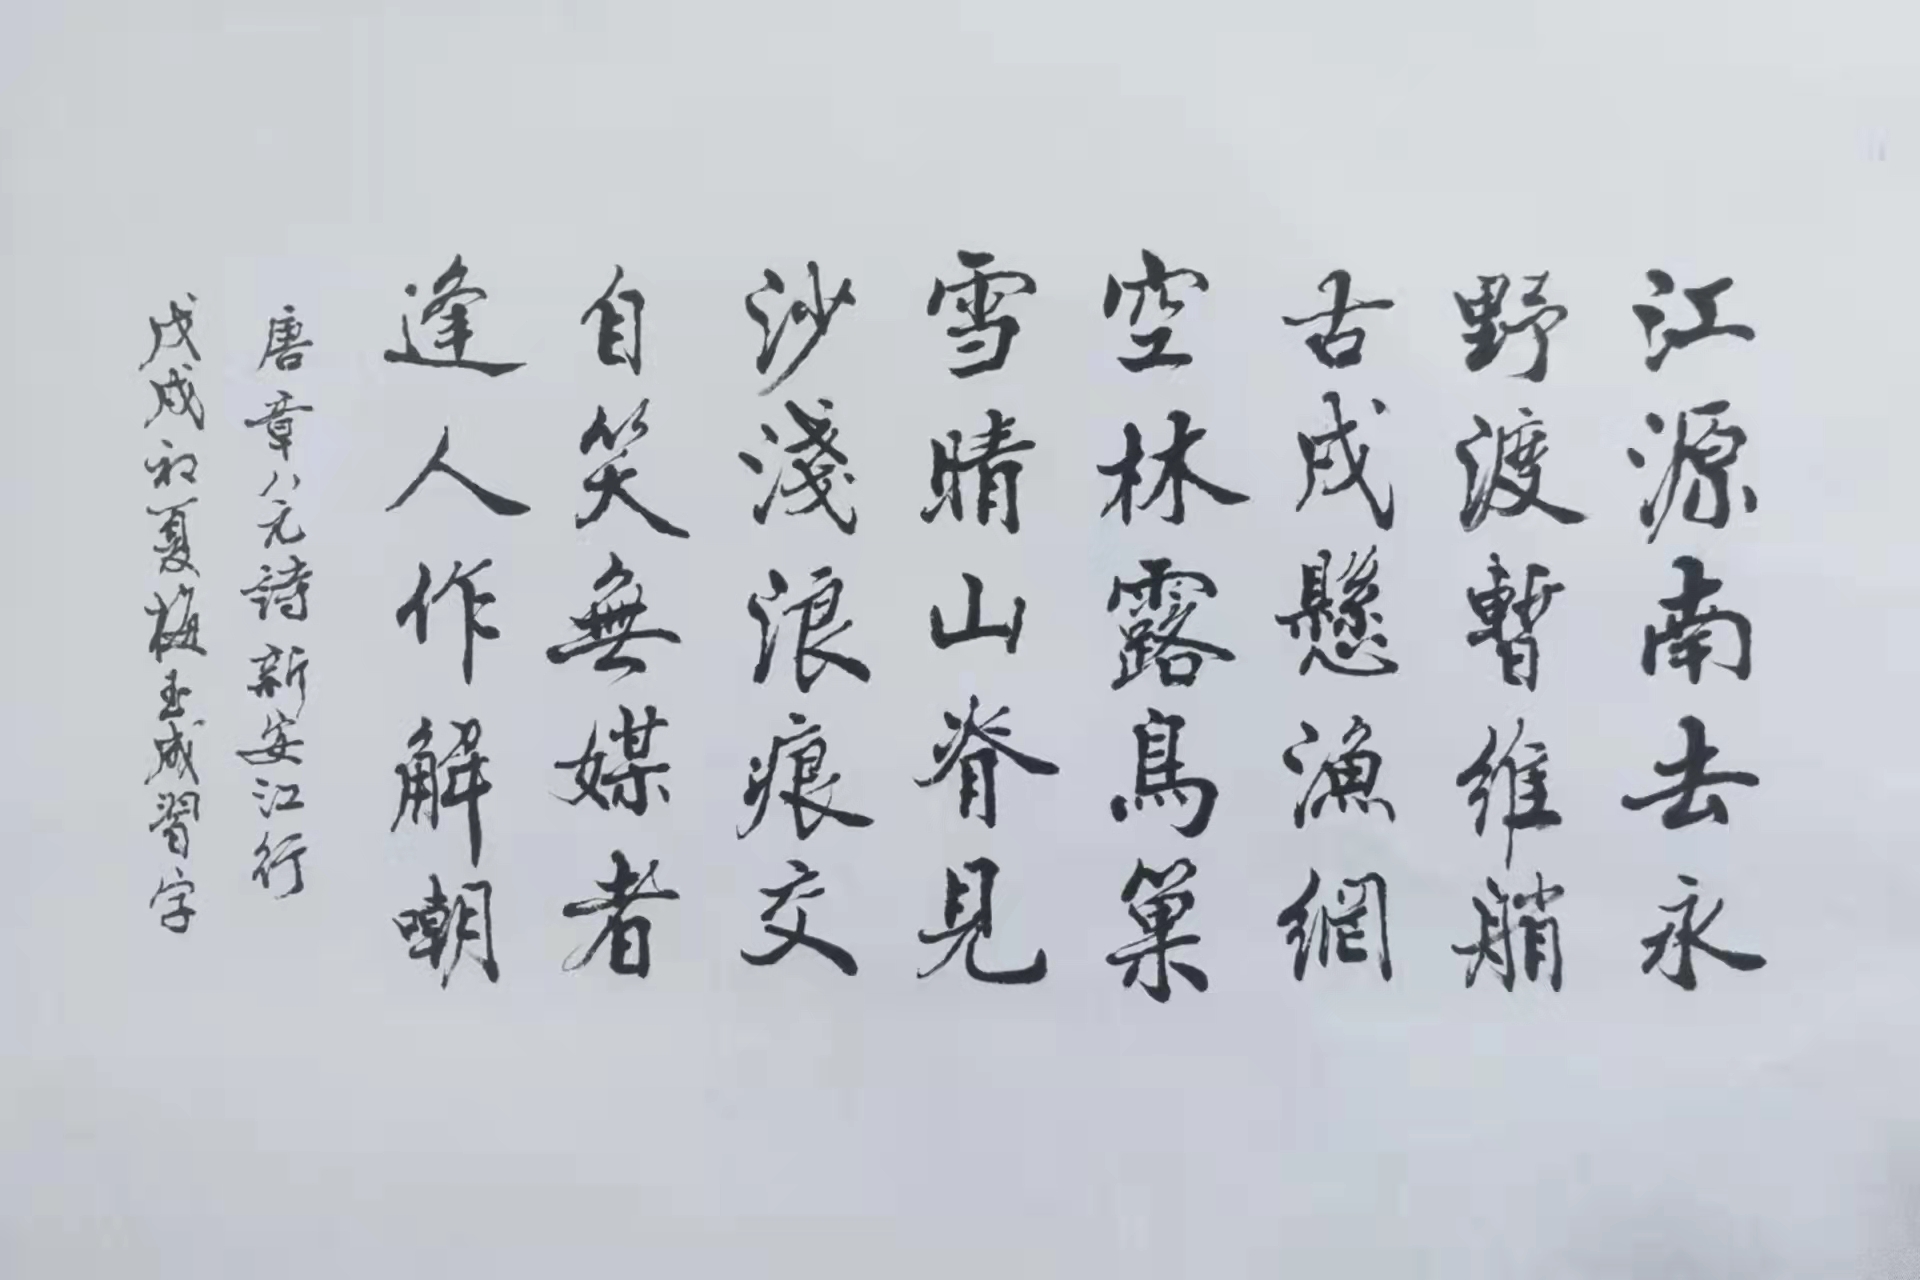 江源南去永
野渡暫維艄
古戍懸漁網
空林露鳥巢
雪晴山脊見
沙淺浪痕交
自笑無媒者
逢人作解嘲
唐章八元詩新安江行
戊戌初夏梅玉成習字